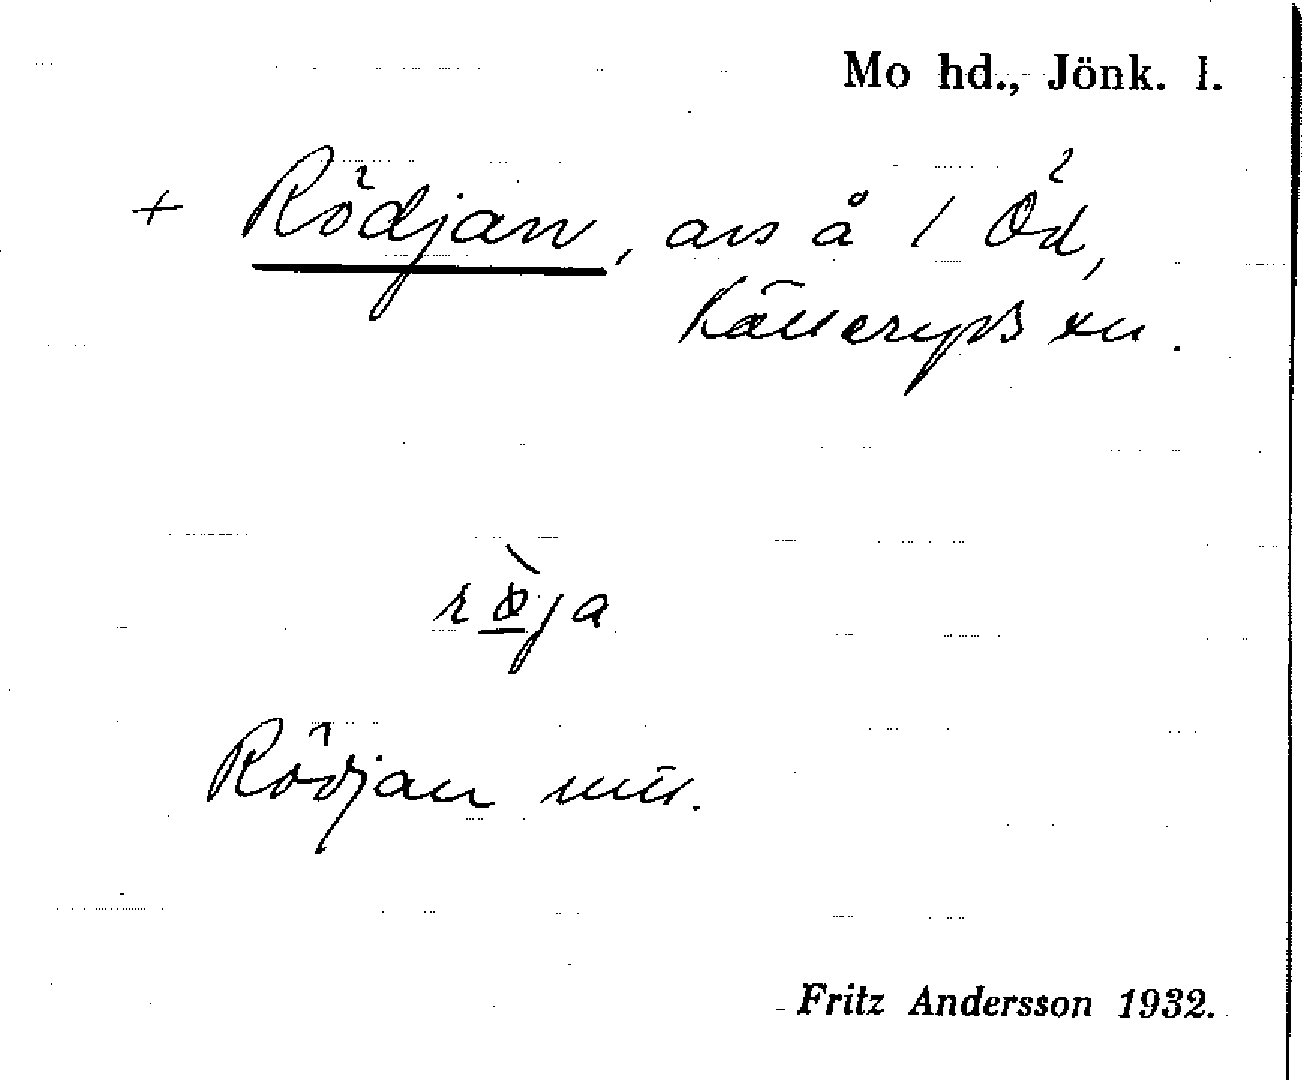 Mo hd., Jönk. l.
+ Rödjan, avs å 1 Öd,
Källeryds sn.
röja
Rödjan
Fritz Andersson 1932.